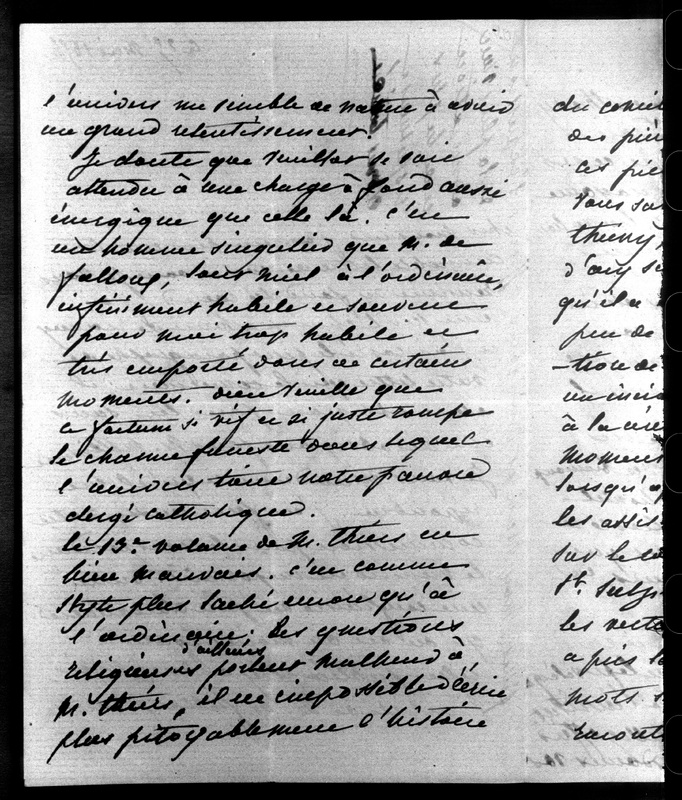 l'univers me semble de nature à avoir
un grand retentissement.
Je doute que Veuillot se soit
attendu à une charge à fond aussi
énergique que celle là. c'est
un homme singulier que M. de
falloux, tout miel à l'ordinaire,
infiniment habile et souvent
pour moi trop habile et
très emporté dans de certains
moments. Dieu veuille que
ce factum si vif et si juste rompe
le charme funeste dans lequel
l'univers tient notre pauvre
clergé catholique.
le 13e volume de M. thiers est
bien mauvais. c'est comme
style plus laché encore qu'à
l'ordinaire. Les questions
religieuses d'ailleurs portent malheur à
M. thiers, il est impossible d'écrire
plus pitoyablement l'histoire
du
des
ces
vous
thierry
d'
qu'il a
peu de
-tion de
un
à la
moment
lorsqu'
les
sur le
St. Sulp
les
a pris
mots